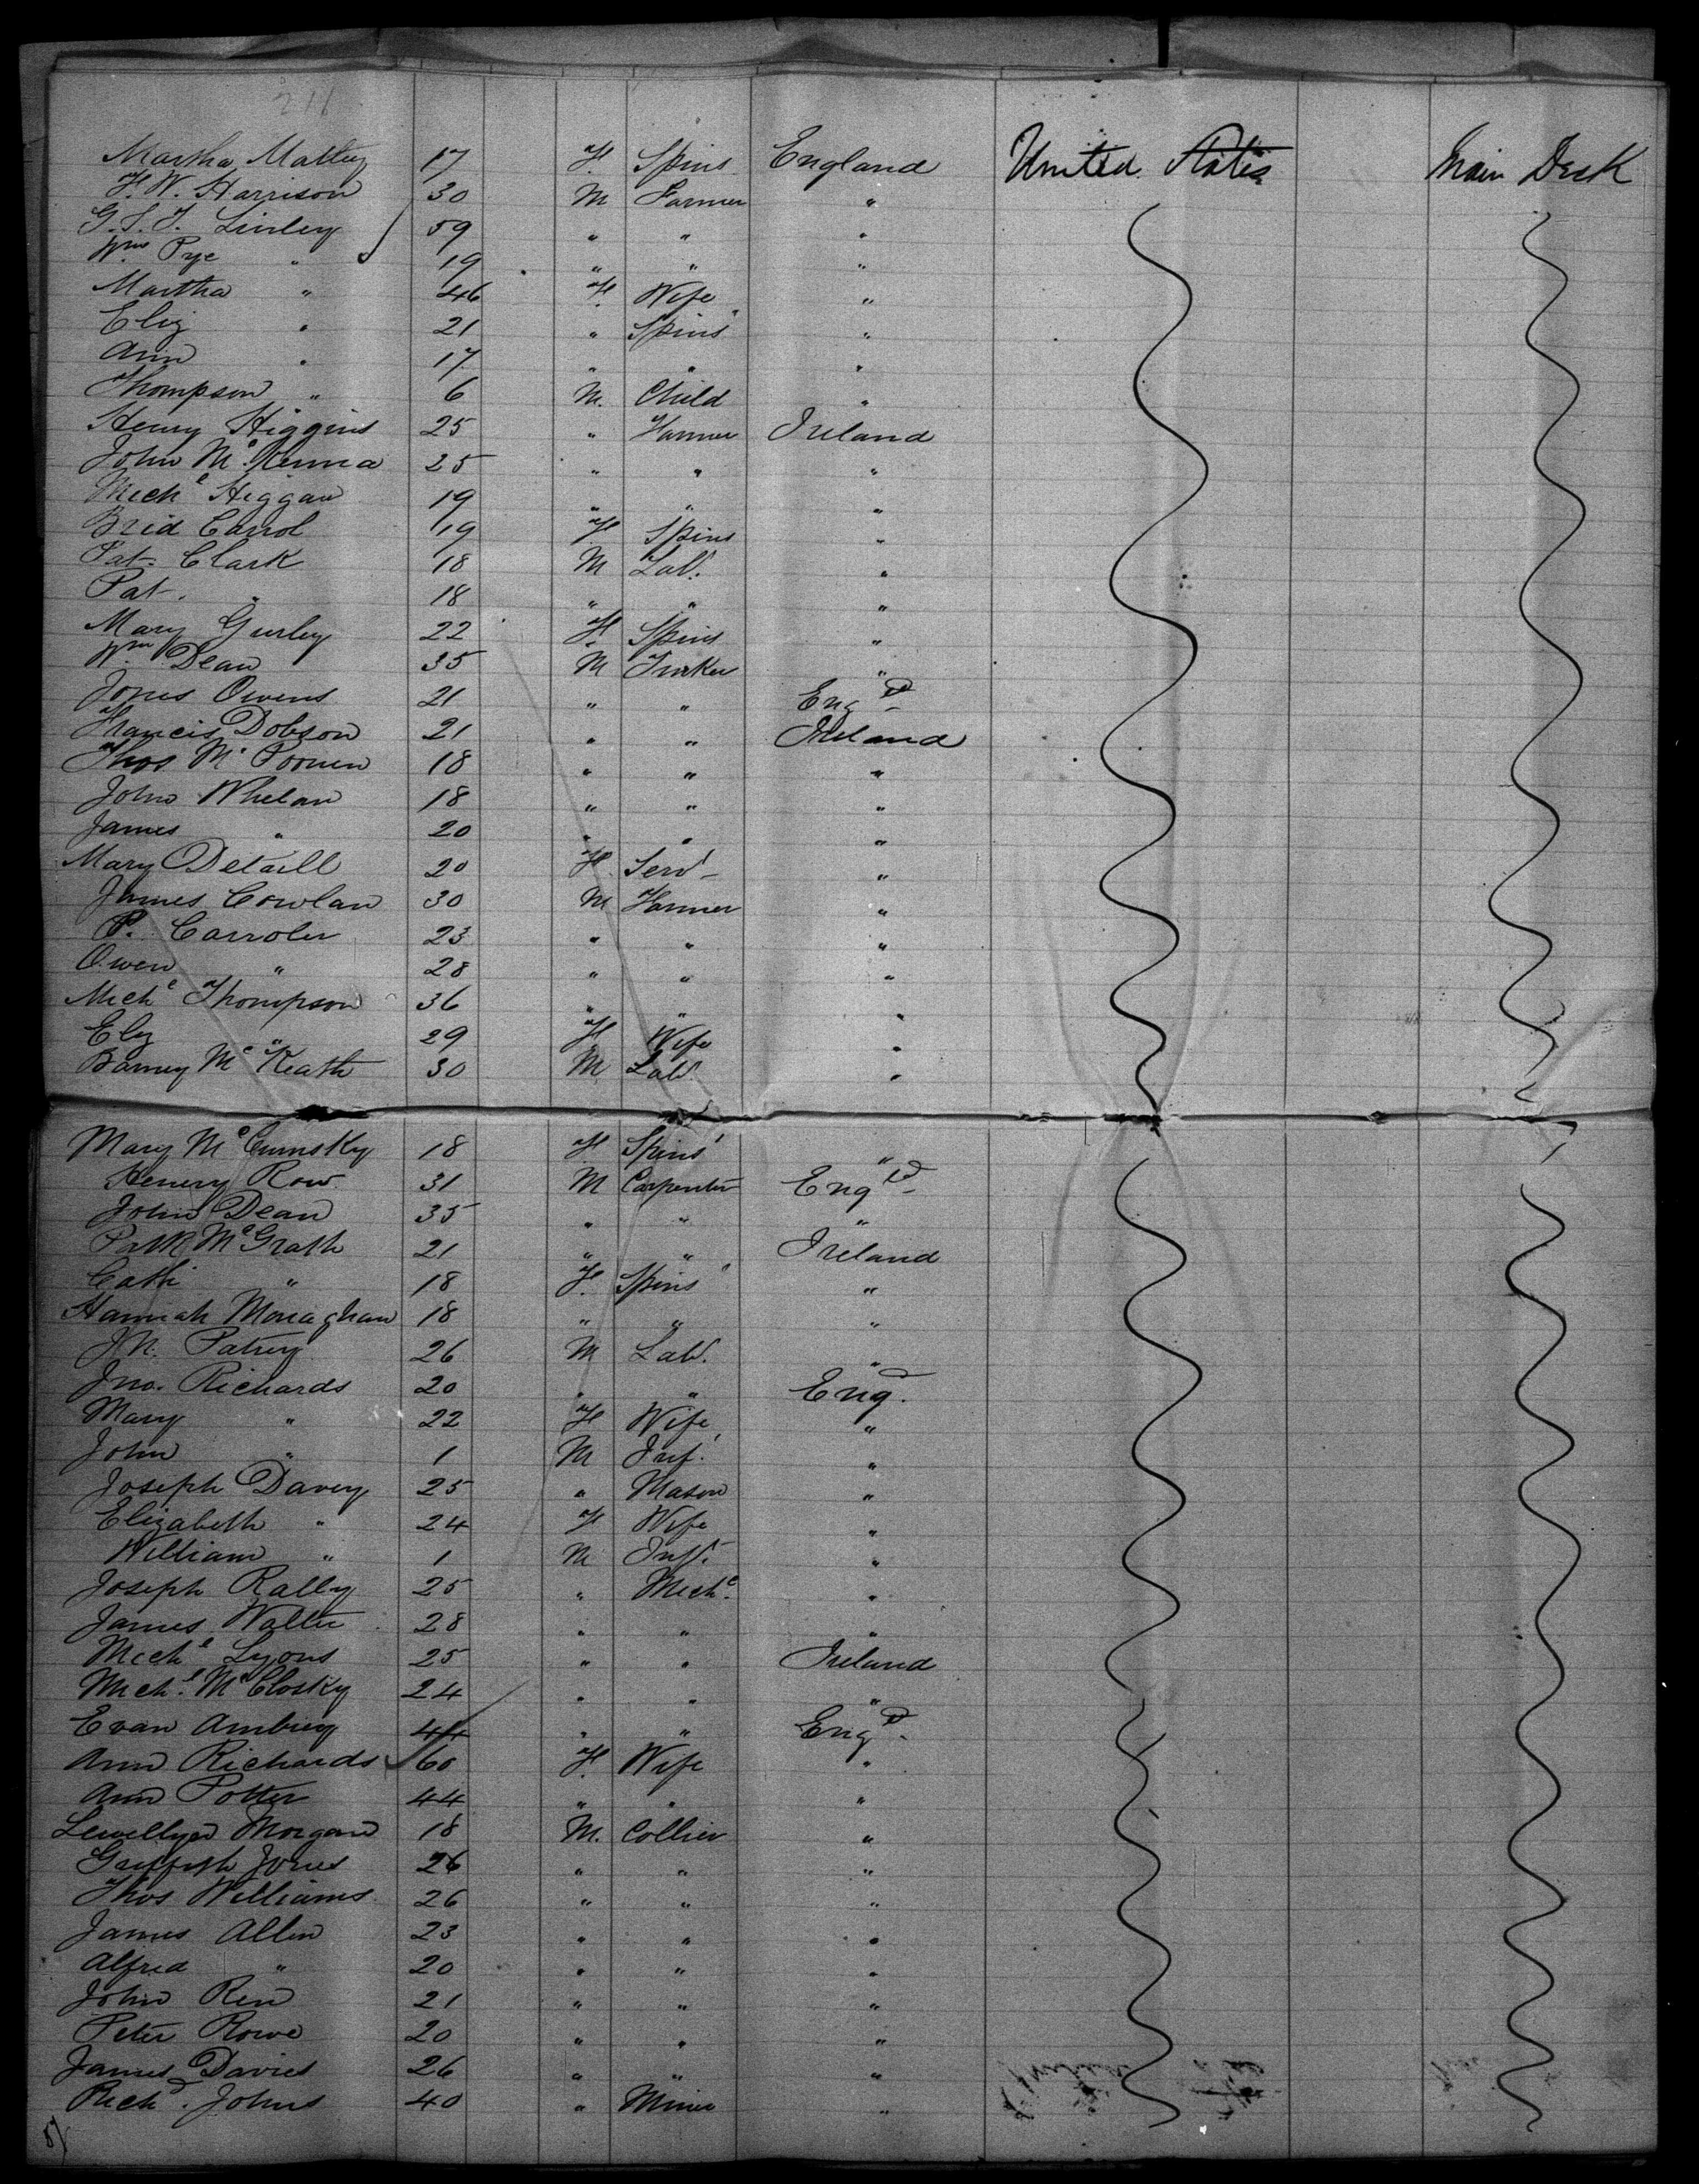 211
Martha Mattey 17 F. Spins England United States Main Deck
F. W. Harrison 30 M Farmer "
G. S. T. Linley 59 " " "
Wm Pye " 19 " " "
Martha " 46 F. Wife "
Eliz " 21 " Spins "
Ann " 17 " " "
Thompson " 6 M. Child "
Henry Higgins 25 " Farmer Ireland
John Mc Kenna 25 " " "
Miche Higgan 19 " " "
Brid Carrol 19 F Spins "
Pat. Clark 18 M Labr. "
Pat. " 18 " " "
Mary Gurley 22 F. Spins "
Wm Dean 35 M "
Jones Owens 21 " " Engd
Francis Dobson 21 " " Ireland
Thos Mc 18 " " "
John Whelan 18 " " "
James " 20 " " "
Mary 20 F. Servt "
James Cowlan 30 M Farmer "
P. Carroler 23 " " "
Owen " 28 " " "
Miche Thompson 36 " " "
Elz " 29 F Wife "
Barney Mc Keath 30 M Labr "
Mary Mc Cumsky 18 F Spins "
Henery Row 31 M Carpenter Engd
John Dean 35 " " "
Patk McGrath 21 " " Ireland
Cath " 18 F. Spins "
Hannah Monaghan 18 " " "
26 M Labr. "
Jno. Richards 20 " " Engd.
Mary " 22 F Wife "
John " 1 M Inf. "
Joseph Davey 25 " Mason "
Elizabeth " 24 F Wife "
William " 1 M Inft. "
Joseph Rally 25 " Meche. "
James Walter 28 " " "
Miche Lyons 25 " " Ireland
Miche. Mc Closky 24 " " "
Evan 44 " " Engd.
Ann Richards 60 F. Wife "
Ann Potter 44 " " "
Lewellyn Morgan 18 M. Collier "
Griffith Jones 26 " " "
Thos Williams 26 " " "
James Allen 23 " " "
Alfred " 20 " " "
John Ren 21 " " "
Peter Rowe 20 " " "
James Davies 26 " " "
Richd. Johns 40 " Miner "
57